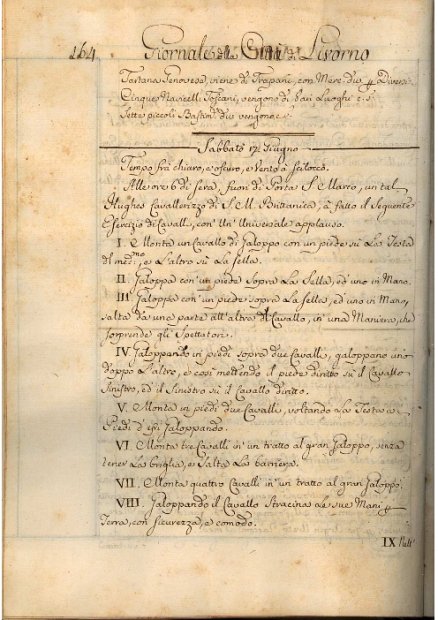 164. Giornale della Città di Livorno
Tartana Genovese, viene di Trapani, con Merc. div.
Cinque Navicelli Toscani, vengono di vari Luoghi
Sette piccoli Bastim.ti div. vengono
Sabbato 12 Giugno
Tempo frà chiaro, e oscuro, e Vento à scilocco.
Alle ore 6 di sera, fuori di Porta S. Marco, un tal
Hughes Cavallerizzo di S. M. Britanica, à fatto il Seguente
Esercizio di Cavalli, con Un' Universale applauso.
I. Monta un Cavallo di Galoppo con un piede sù La Testa
del med.mo, e L'altro sù La Sella.
II. Galoppa con un piede sopra La Sella, ed uno in Mano.
III. Galoppa con un piede sopra la Sella, ed uno in Mano,
salta da una parte all'altra del Cavallo, in una Maniera, che
sorprende gli Spettatori.
IV. Galoppando in piedi sopra due Cavalli, galoppano uno
doppo L'altro, e così mettendo il piede diritto sù il Cavallo
Sinistro, ed il Sinistro sù il Cavallo diritto.
V. Monta in piedi due Cavalli, voltando La Testa a
Piedi d'essi Galoppando.
VI. Monta tre Cavalli in un tratto al gran Galoppo, senza
tener La briglia, e Salta La barriera.
VII. Monta quattro Cavalli in un tratto al gran Galoppo.
VIII. Galoppando il Cavallo Strascina Le sue Mani
Terra, con sicurezza, e comodo.
IX